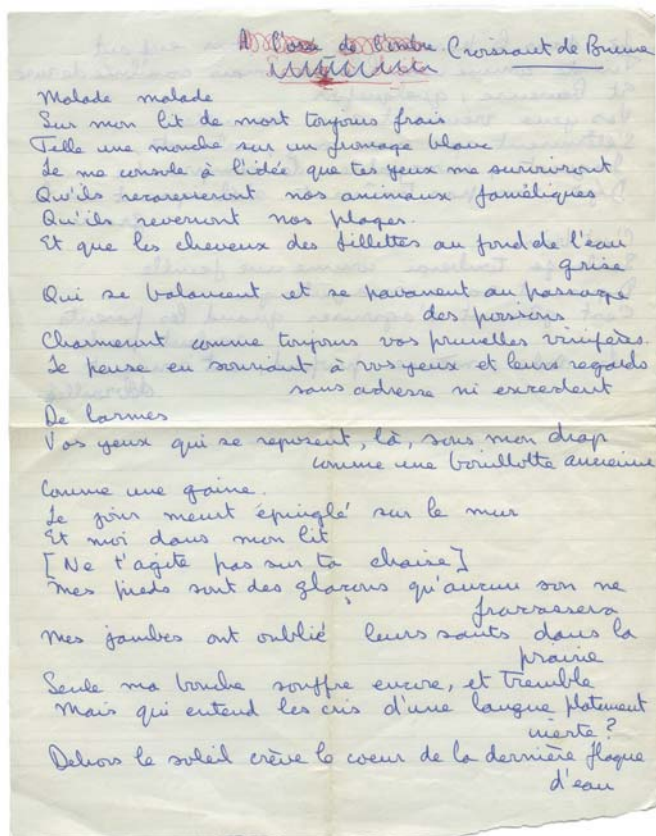 A l'orée de l'ombre Croissant de Brume
Malade malade
Sur mon lit de mort toujours frais
Telle une mouche sur un fromage blanc
Je me console à l'idée que tes yeux me survivront
Qu'ils recaresseront nos animaux faméliques
Qu'ils reverront nos plages.
Et que les cheveux des fillettes au fond de l'eau
grise
Qui se balancent et se pavanent au passage
des poissons
Charmeront comme toujours vos prunelles vinifères.
Je pense en souriant à vos yeux et leurs regards
sans adresse ni excédent
De larmes
Vos yeux qui se reposent, là, sous mon drap
comme une bouillotte ancienne
Comme une gaine.
Le jour meurt épinglé sur le mur
Et moi dans mon lit
[Ne t'agite pas sur ta chaise]
Mes pieds sont des glaçons qu'aucun son ne
fracassera
Mes jambes ont oublié leurs sauts dans la
prairie
Seule ma bouche souffre encore, et tremble
Mais qui entend les cris d'une langue platement
inerte ?
Dehors le soleil crève le coeur de la dernière flaque
d'eau